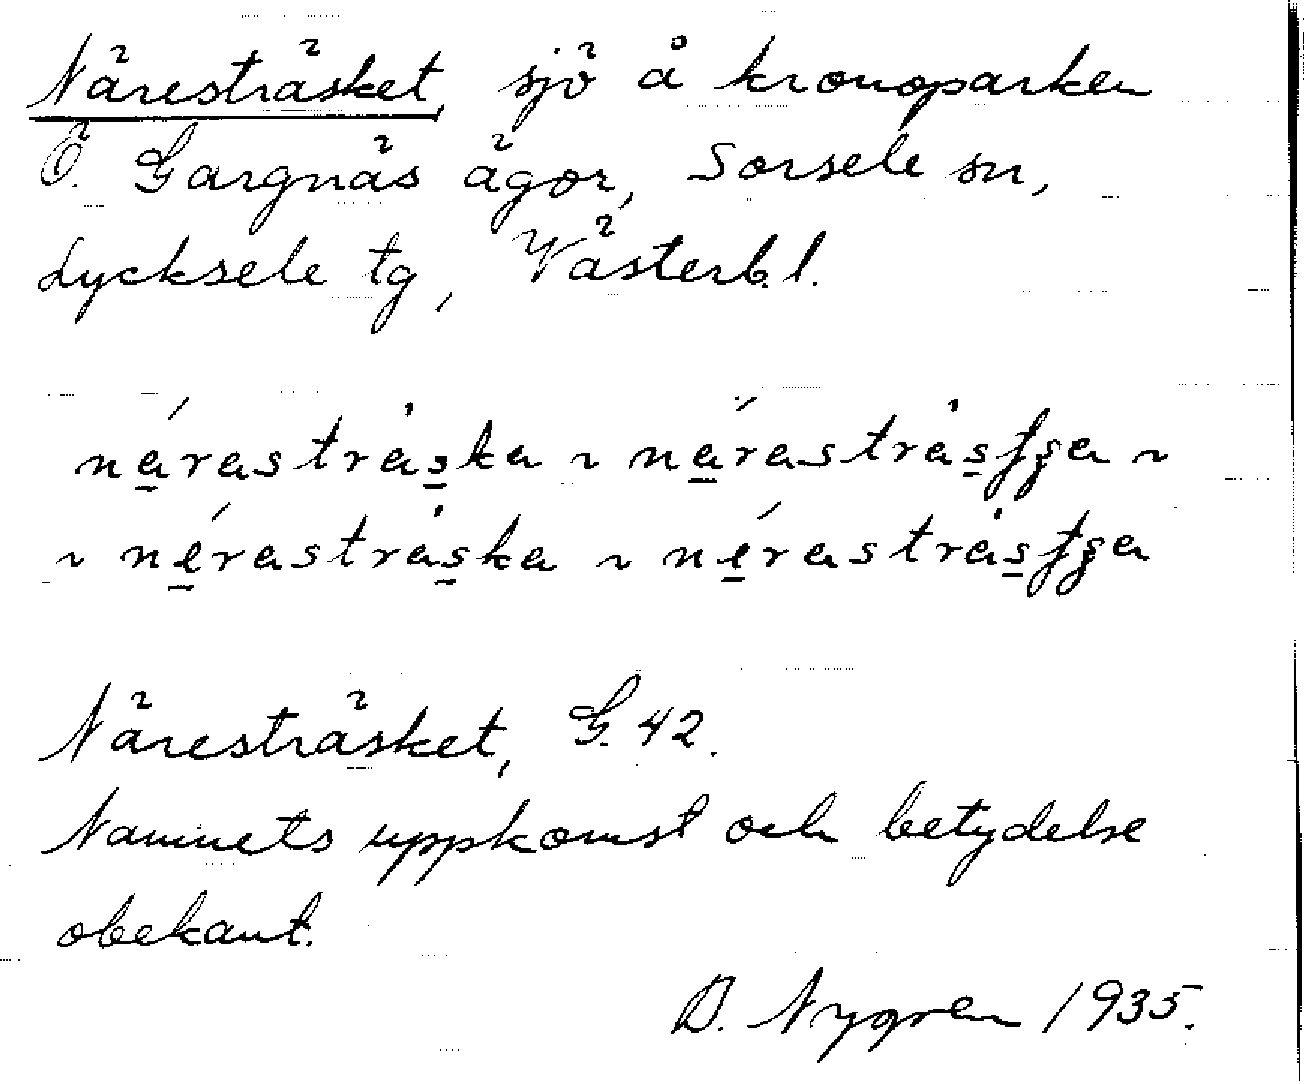 Näresträsket, sjö å kronoparken
Ö. Gargnäs ägor, Sorsele sn,
Lycksele tg, Västerb. l.
nárastràska ~ nárastràsʃʒa ~
~ nérastràska ~ nérastràsʃʒa
Näresträsket, G. 42.
Namnets uppkomst och betydelse
obekant.
D. Nygren 1935.